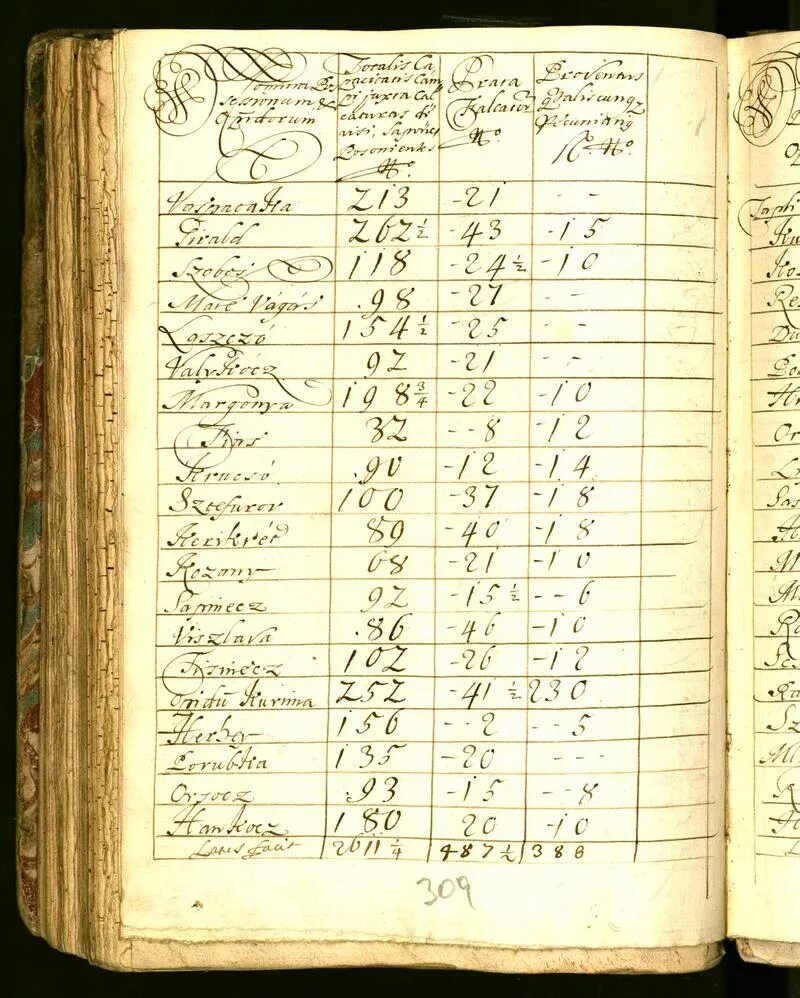 Nomina Pos
sessionum &
Opidorum
Totalis Ca
pacitatis Cam
pi juxta Cal
caturas di
visi, Saptiles
Posonienses
No.
Prata
Falcator
No.
Proventus
qualiscunq
Pecuniariq
Rf. No.
213 -21 - -
Girald 262½ -43 -15
Szobos 118 -24½ -10
Maré Vágás .98 -27 - -
Laszczó 154½ -25 - -
Valykócz 92 -21 - -
Margonya 198¾ -22 -10
Fias 32 --8 -12
Krucsó .90 -12 -14
100 -37 -18
89 -40 -18
Kozany 68 -21 -10
Sapinecz 92 -15½ --6
Viszlava .86 -46 -10
Tisinecz 102 -26 -12
Opidu Kurima 252 -41½ 230
Herher 156 --2 --5
Porubka 135 -20 ---
Orsocz .93 -15 --8
Hankocz 180 20 -10
Latus facit 2611¼ 487½ 388
309